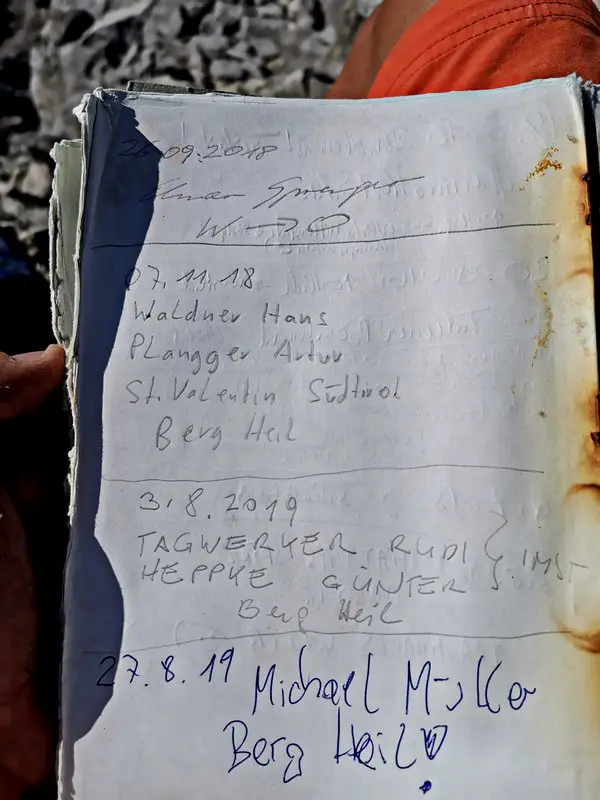 26.09.2018
07.11.18
Waldner Hans
Plangger Artur
St. Valentin Südtirol
Berg Heil
3.8.2019
TAGWERKER RUDI
HEPPKE GÜNTER } IMST
Berg Heil
27.8.19 Michael Müller
Berg Heil!